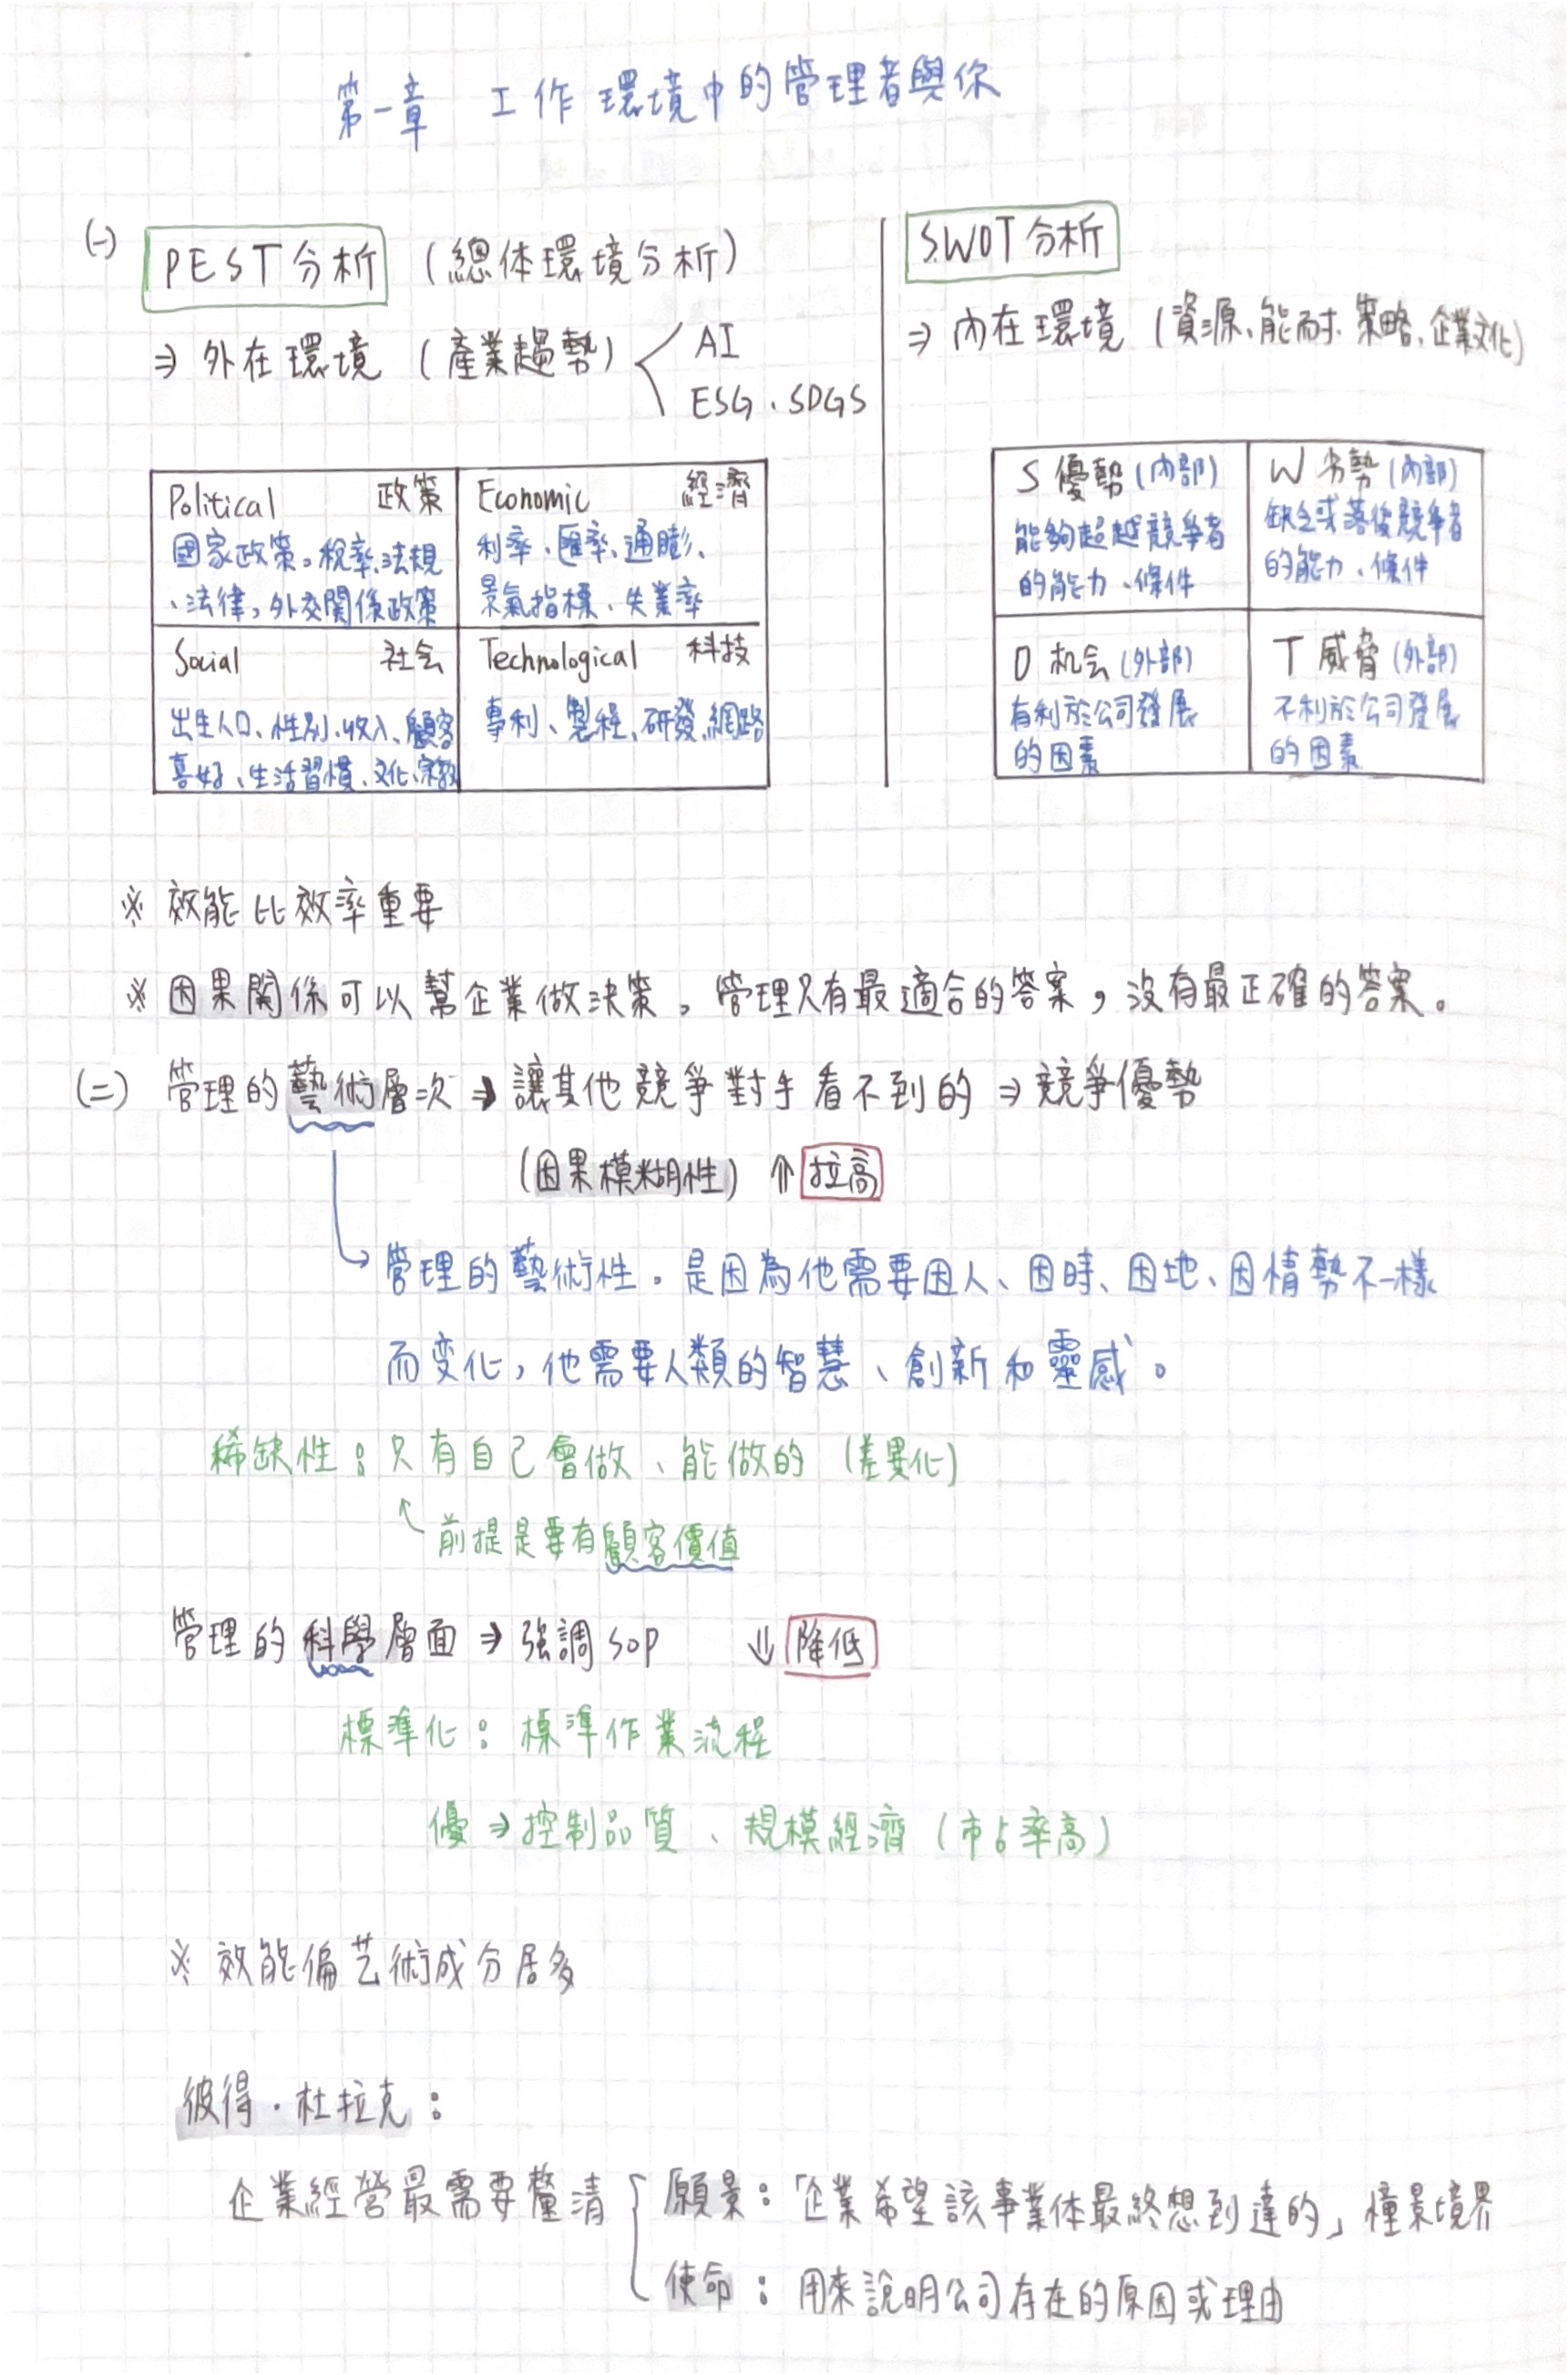 第一章 工作環境中的管理者與你
(一) PEST分析 (總体環境分析)
⇒ 外在環境 (產業趨勢) AI
ESG、SDGS
Political 政策
國家政策。稅率、法規
、法律,外交關係政策
Economic 經濟
利率、匯率、通膨、
景氣指標、失業率
Social 社会
出生人口、性別、收入、顧客
喜好、生活習慣、文化、宗教
Technological 科技
專利、製程、研發、網路
SWOT分析
⇒ 內在環境 (資源、能耐、策略、企業文化)
S 優勢 (內部)
能夠超越競爭者
的能力、條件
W 劣勢 (內部)
缺乏或落後競爭者
的能力、條件
O 机会 (外部)
有利於公司發展
的因素
T 威脅 (外部)
不利於公司發展
的因素
※ 效能比效率重要
※ 因果關係可以幫企業做決策。管理只有最適合的答案,沒有最正確的答案。
(二) 管理的藝術層次 ⇒ 讓其他競爭對手看不到的 ⇒ 競爭優勢
(因果模糊性) ⇑ 拉高
管理的藝術性。是因為他需要因人、因時、因地、因情勢不一樣
而变化,他需要人類的智慧、創新和靈感。
稀缺性:只有自己會做、能做的 (差異化)
前提是要有顧客價值
管理的科學層面 ⇒ 強調SOP ⇓ 降低
標準化:標準作業流程
優 ⇒ 控制品質、規模經濟 (市占率高)
※ 效能偏艺術成分居多
彼得.杜拉克:
企業經營最需要釐清
願景:「企業希望該事業体最終想到達的」憧景境界
使命:用來說明公司存在的原因或理由